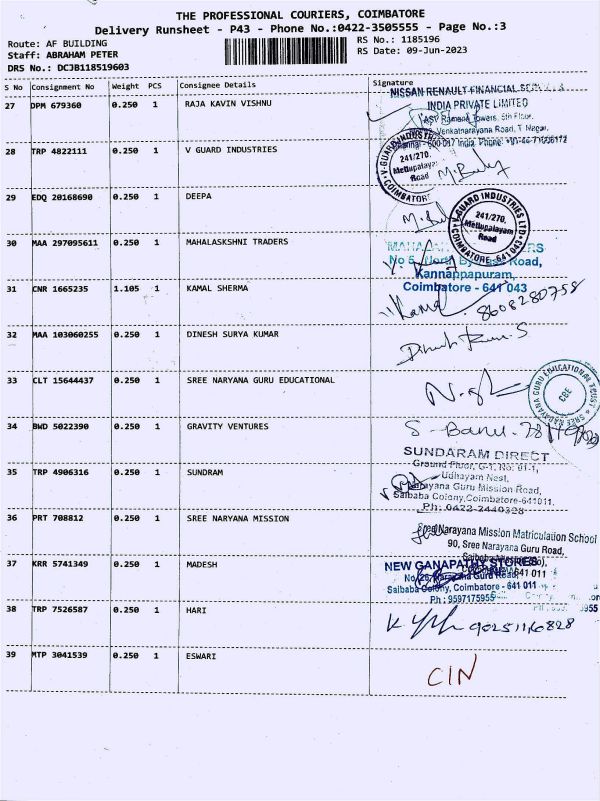 THE PROFESSIONAL COURIERS, COIMBATORE
Delivery Runsheet - P43 - Phone No.:0422-3505555 - Page No.:3
Route: AF BUILDING
Staff: ABRAHAM PETER
DRS No.: DCJB118519603
RS No.: 1185196
RS Date: 09-Jun-2023
S No Consignment No Weight PCS Consignee Details Signature
27 DPM 679360 0.250 1 RAJA KAVIN VISHNU
NISSAN RENAULT FINANCIAL
INDIA PRIVATE LIMITED
Towers, 5th Floor,
Venkatnarayana Road, T Nagar,
28 TRP 4822111 0.250 1 V GUARD INDUSTRIES
V-GUARD INDUSTRIES
241/270,
Mettupalayam
Road
COIMBATORE
29 EDQ 20168690 0.250 1 DEEPA
V-GUARD INDUSTRIES LTD.
241/270,
Mettupalayam
Road
COIMBATORE - 641 043
30 MAA 297095611 0.250 1 MAHALASKSHNI TRADERS
No 5, North By Road,
Kannappapuram,
Coimbatore - 641 043
31 CNR 1665235 1.105 1 KAMAL SHERMA
Kamal 8608280758
32 MAA 103060255 0.250 1 DINESH SURYA KUMAR
Dinesh Kumar. S
33 CLT 15644437 0.250 1 SREE NARYANA GURU EDUCATIONAL
SREE NARAYANA GURU EDUCATIONAL TRUST
CBE
34 BWD 5022390 0.250 1 GRAVITY VENTURES
S - Banu -
35 TRP 4906316 0.250 1 SUNDRAM
SUNDARAM DIRECT
Ground Floor, G-1, No: 91-1,
Udhayam Nest,
Narayana Guru Mission Road,
Saibaba Colony, Coimbatore-641011.
Ph: 0422-2440328
36 PRT 708812 0.250 1 SREE NARYANA MISSION
Sree Narayana Mission Matriculation School
90, Sree Narayana Guru Road,
37 KRR 5741349 0.250 1 MADESH
NEW GANAPATHY STORES
No. 26, Narayana Guru Road,
Saibaba Colony, Coimbatore - 641 011
Ph : 9597175955
38 TRP 7526587 0.250 1 HARI
39 MTP 3041539 0.250 1 ESWARI
CIN